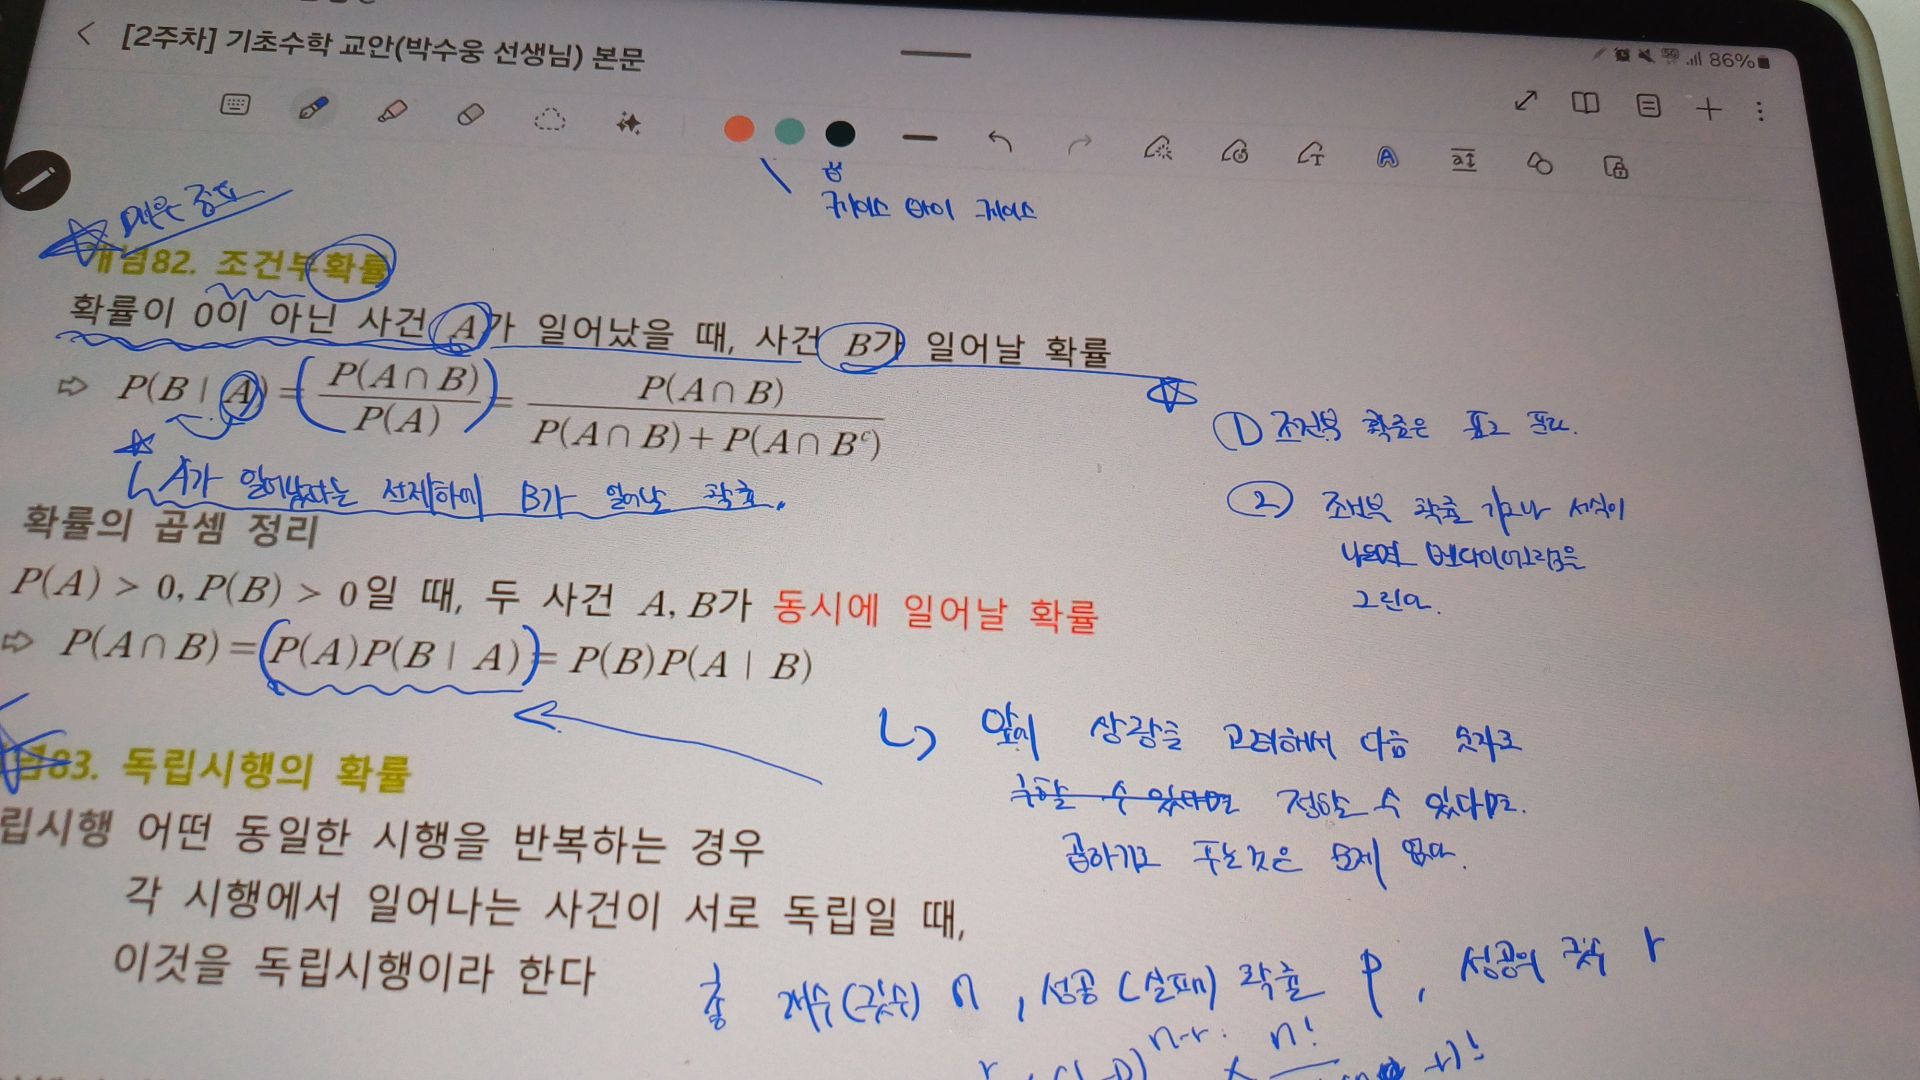 [2주차] 기초수학 교안(박수웅 선생님) 본문
86%
케이스 바이 케이스
매우 중요
개념82. 조건부확률
확률이 0이 아닌 사건 A가 일어났을 때, 사건 B가 일어날 확률
⇨ P(B | A) = P(A∩B) / P(A) = P(A∩B) / P(A∩B) + P(A∩Bᶜ)
① 조건부 확률은 표로 푼다.
A가 일어났다는 전제하에 B가 일어날 확률.
② 조건부 확률 기호나 서식이
나오면 벤다이어그램을
그린다.
확률의 곱셈 정리
P(A) > 0, P(B) > 0일 때, 두 사건 A, B가 동시에 일어날 확률
⇨ P(A∩B) = (P(A)P(B | A)) = P(B)P(A | B)
앞의 상황을 고려해서 다음 숫자로
수 있다면 정할 수 있다면.
곱하기로 푸는것은 문제 없다.
념83. 독립시행의 확률
립시행 어떤 동일한 시행을 반복하는 경우
각 시행에서 일어나는 사건이 서로 독립일 때,
이것을 독립시행이라 한다
총 개수(횟수) n, 성공(실패) 확률 P, 성공의 횟수 r
n-r n!